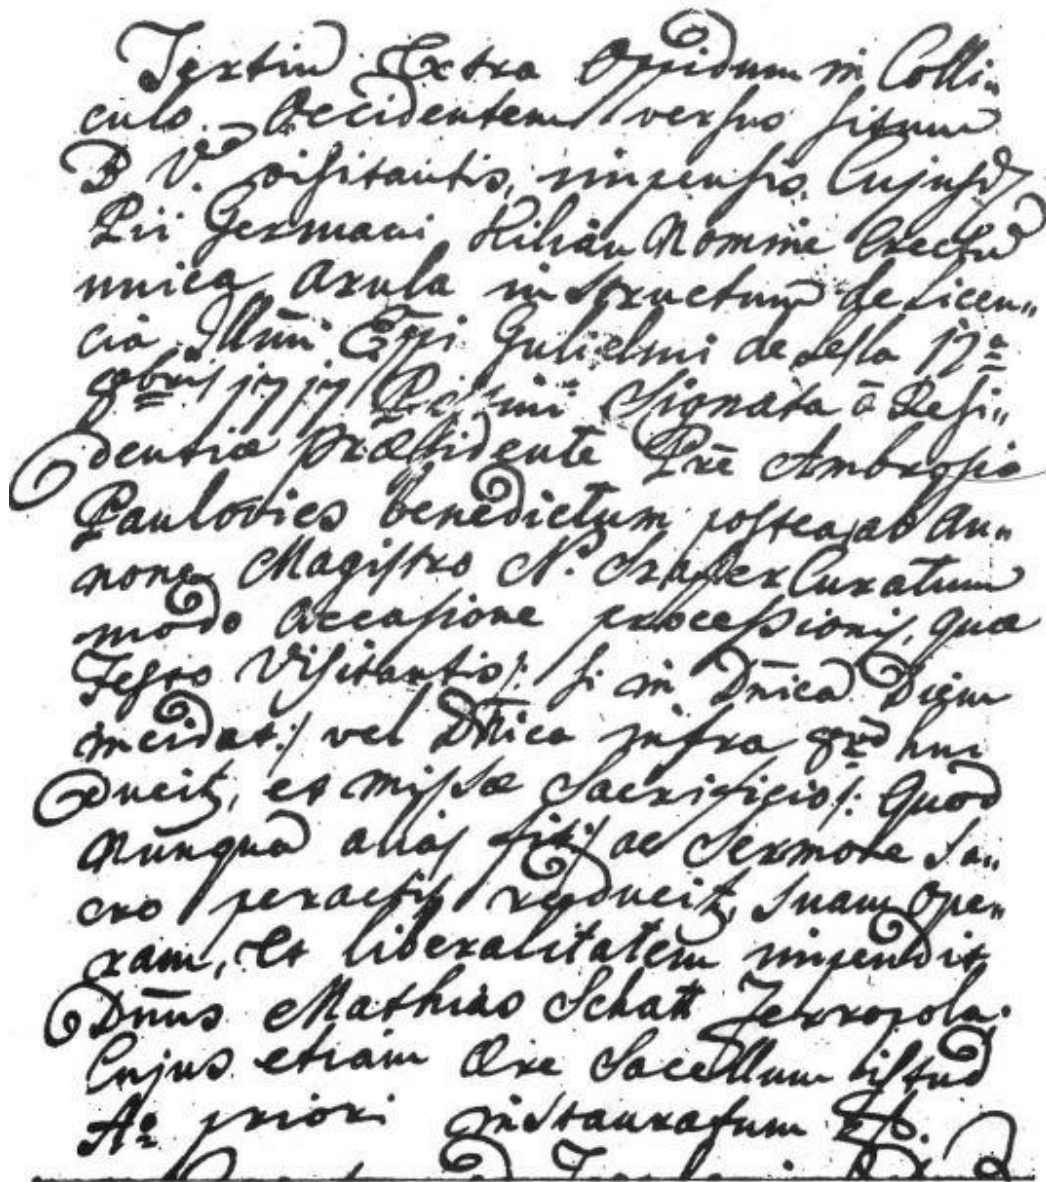 Tertiū Extra Oppidum in Colli„
culo Occidentem versus situm
B V. visitantis, impensis Cujusd
Pii Germani Kilian Nomine Erectū
unica Arula instructum de Licen„
cia Illm̄i Eppi Gulielmi de Lesla 17ª
8bris 1717 Signata ā Resi„
dentiæ Præsidente Pr̄e Ambrosio
Paulovics benedictum, postea ab An„
nonæ Magistro N. Curatum
modo occasione processionis, quæ
Festo Visitantis /: si in Dn̄ica Diem
incidat :/ vel Dn̄ica infra huc
ducitꝫ, et missæ Sacrificio /: Quod
Nunquā alias fit :/ ac Sermone Sa„
cro peractis reducitꝫ, Suam Ope„
ram, Et liberalitatem impendit
Dn̄us Mathias Schatt Ferropola.
Cujus etiam Ære Sacellum istud
Aº priori instauratum Est.